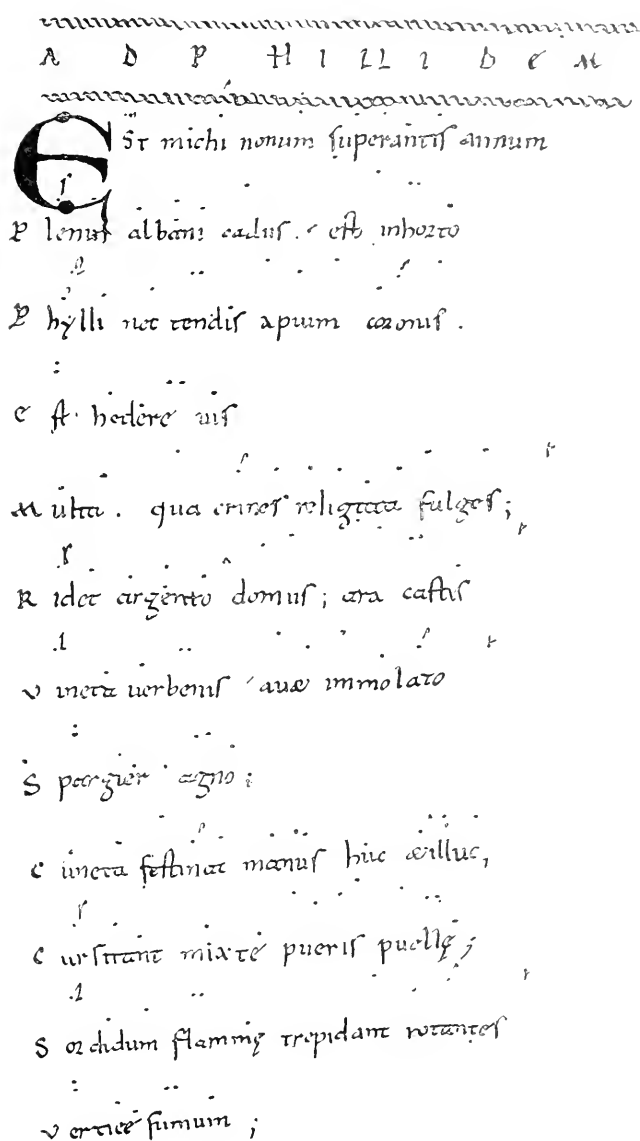 AD PHILLIDEM
EST michi nonum superantis annum
Plenus albani cadus. est inhorto
Phylli nec tendis apium coronis.
Est. hedere uis
Multa. qua crines religata fulges;
Ridet argento domus; ara castis
Vincta uerbenis auæ immolato
Spargier agno;
Cuncta festinat manus huc æilluc,
Cursitant mixte pueris puellę;
Sordidum flammę trepidant rotantes
Vertice fumum;